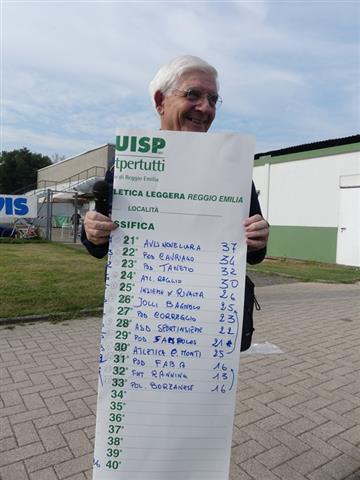 UISP
tpertutti
o di Reggio Emilia
LETICA LEGGERA REGGIO EMILIA
LOCALITÀ
SSIFICA
PIS
21° AVIS NOVELLARA 37
22° POD CAVRIAGO 34
23° POD TANETO 32
24° ATL. BAGGIO 30
25° INSIEME X RIVALTA 26
26° JOLLI BAGNOLO 25
27° POD CORREGGIO 23
28° ASD SPORTINSIEME 22
29° POD SAMPOLES 21
30° ATLETICA C. MONTI 25
31° POD FABA 16
32° RUNNING 13
33° POL. BORZANESE 16
34°
35°
36°
37°
38°
39°
40°